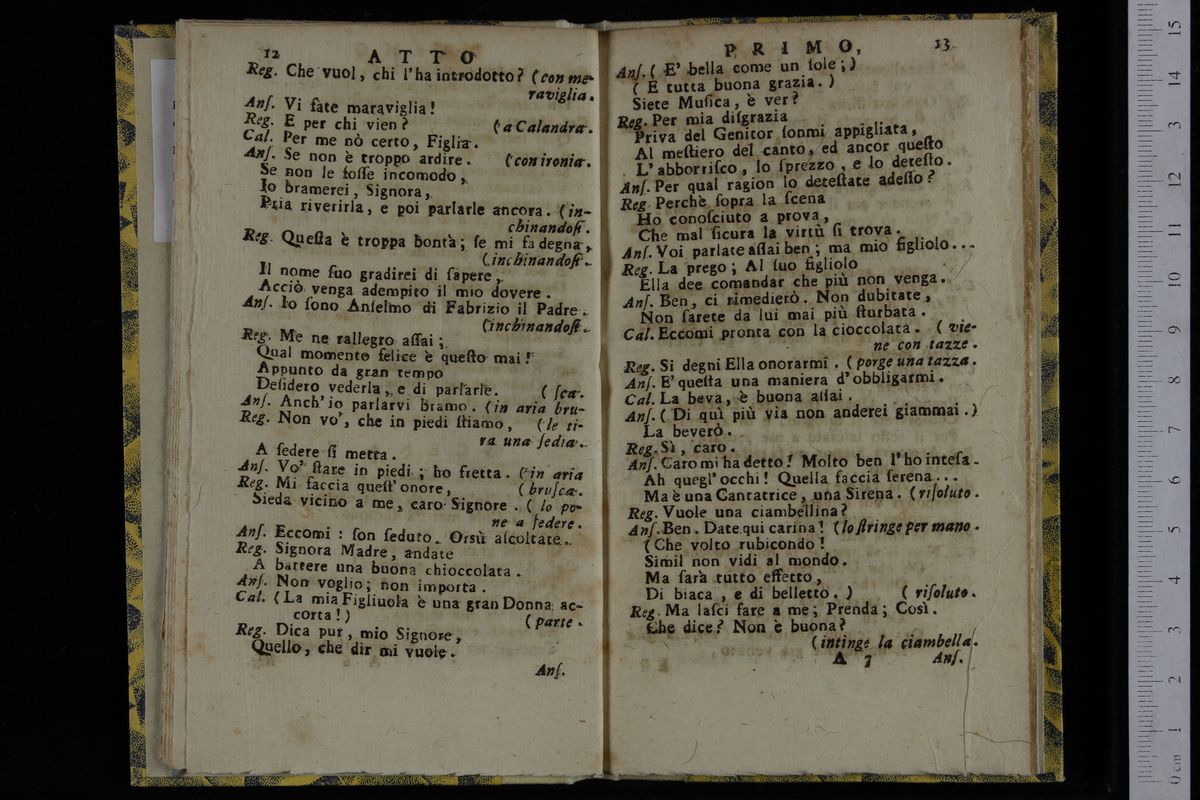 12 ATTO
Reg. Che vuol, chi l'ha introdotto? (con me-
raviglia.
Anſ. Vi fate maraviglia!
Reg. E per chi vien? (a Calandra.
Cal. Per me nò certo, Figlia.
Anſ. Se non è troppo ardire. (con ironia.
Se non le foſſe incomodo,
Io bramerei, Signora,
Pria riverirla, e poi parlarle ancora. (in-
chinandoſi.
Reg. Queſta è troppa bontà; ſe mi fa degna,
(inchinandoſi.
Il nome ſuo gradirei di ſapere,
Acciò venga adempito il mio dovere.
Anſ. Io ſono Anſelmo di Fabrizio il Padre.
(inchinandoſi.
Reg. Me ne rallegro aſſai;
Qual momento felice è queſto mai!
Appunto da gran tempo
Deſidero vederla, e di parlarle. (ſca-
Anſ. Anch'io parlarvi bramo. (in aria bru-
Reg. Non vo', che in piedi ſtiamo, (le ti-
ra una ſedia.
A ſedere ſi metta.
Anſ. Vo' ſtare in piedi; ho fretta. (in aria
Reg. Mi faccia queſt'onore, (bruſca.
Sieda vicino a me, caro Signore. (lo po-
ne a ſedere.
Anſ. Eccomi: ſon ſeduto. Orsù aſcoltate.
Reg. Signora Madre, andate
A battere una buona chioccolata.
Anſ. Non voglio; non importa.
Cal. (La mia Figliuola è una gran Donna ac-
corta!) (parte.
Reg. Dica pur, mio Signore,
Quello, che dir mi vuole.
Anſ.
PRIMO, 13
Anſ. (E' bella come un ſole;)
(E tutta buona grazia.)
Siete Muſica, è ver?
Reg. Per mia diſgrazia
Priva del Genitor ſonmi appigliata,
Al meſtiero del canto, ed ancor queſto
L'abborriſco, lo ſprezzo, e lo deteſto.
Anſ. Per qual ragion lo deteſtate adeſſo?
Reg. Perchè ſopra la ſcena
Ho conoſciuto a prova,
Che mal ſicura la virtù ſi trova.
Anſ. Voi parlate aſſai ben; ma mio figliolo...
Reg. La prego; Al ſuo figliolo
Ella dee comandar che più non venga.
Anſ. Ben, ci rimedierò. Non dubitate,
Non ſarete da lui mai più ſturbata.
Cal. Eccomi pronta con la cioccolata. (vie-
ne con tazze.
Reg. Si degni Ella onorarmi. (porge una tazza.
Anſ. E' queſta una maniera d'obbligarmi.
Cal. La beva, è buona aſſai.
Anſ. (Di quì più via non anderei giammai.)
La beverò.
Reg. Sì, caro.
Anſ. Caro mi ha detto! Molto ben l'ho inteſa.
Ah quegl'occhi! Quella faccia ſerena...
Ma è una Cantatrice, una Sirena. (riſoluto.
Reg. Vuole una ciambellina?
Anſ. Ben. Date qui carina! (lo ſtringe per mano.
(Che volto rubicondo!
Simil non vidi al mondo.
Ma ſarà tutto effetto,
Di biaca, e di belletto.) (riſoluto.
Reg. Ma laſci fare a me; Prenda; Così.
Che dice? Non è buona?
(intinge la ciambella.
A 7 Anſ.